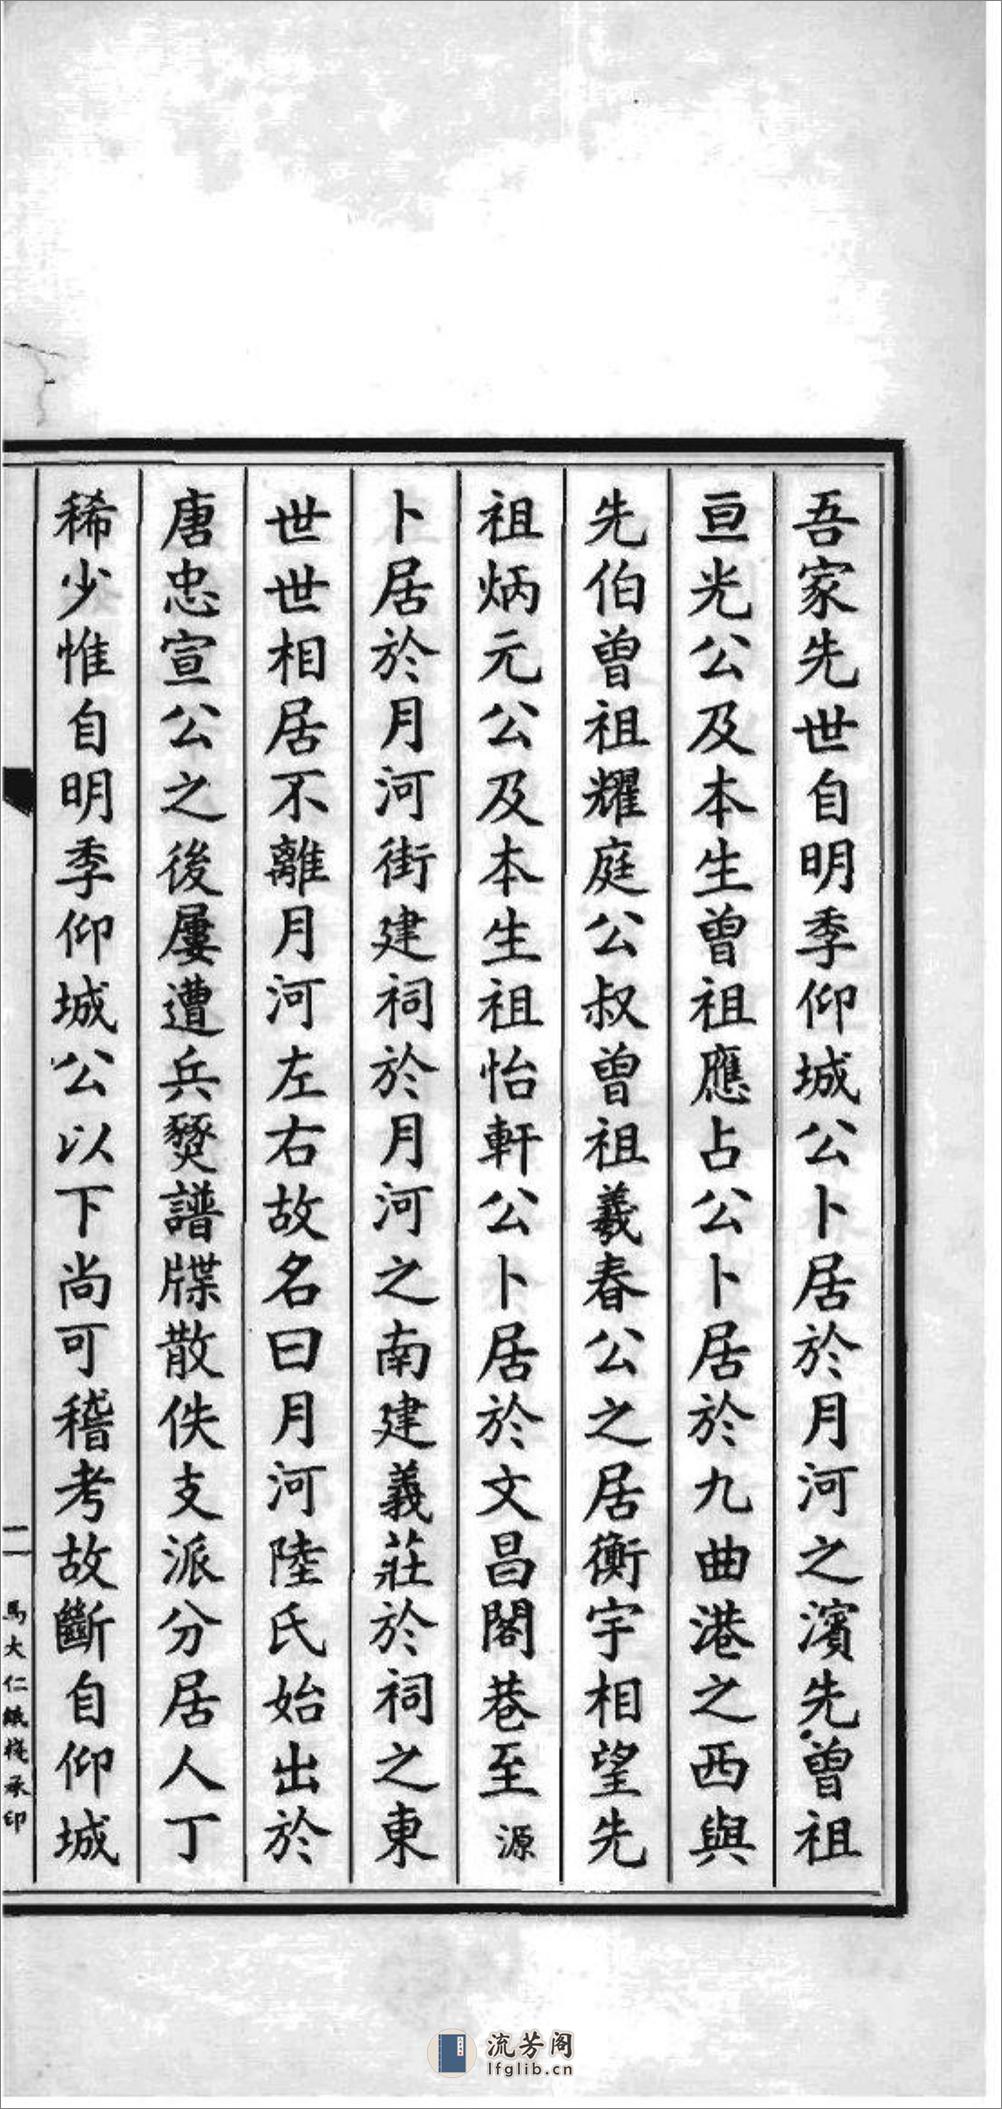 吾家先世自明季仰城公卜居於月河之濱先曾祖
亘光公及本生曾祖應占公卜居於九曲港之西與
先伯曾祖耀庭公叔曾祖羲春公之居衡宇相望先
祖炳元公及本生祖怡軒公卜居於文昌閣巷至源
卜居於月河街建祠於月河之南建義莊於祠之東
世世相居不離月河左右故名曰月河陸氏始出於
唐忠宣公之後屢遭兵燹譜牒散佚支派分居人丁
稀少惟自明季仰城公以下尚可稽考故斷自仰城
二
馬大仁紙棧承印
流芳阁
lfglib.cn